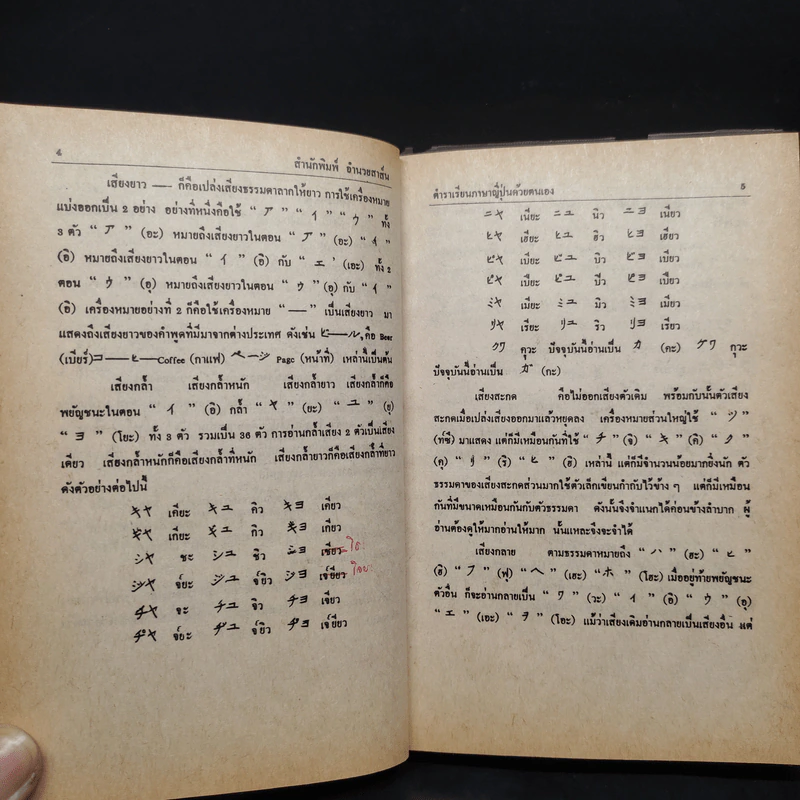 ๔
สำนักพิมพ์ อำนวยสาส์น
เสียงยาว —— ก็คือเปล่งเสียงธรรมดาลากให้ยาว การใช้เครื่องหมาย
แบ่งออกเป็น 2 อย่าง อย่างที่หนึ่งคือใช้ “ ア ” “ イ ” “ ウ ” ทั้ง
3 ตัว “ ア ” (อะ) หมายถึงเสียงยาวในตอน “ ア ” (อะ) “ イ ”
(อิ) หมายถึงเสียงยาวในตอน “ イ ” (อิ) กับ “ エ ’ (เอะ) ทั้ง 2
ตอน “ ウ ” (อุ) หมายถึงเสียงยาวในตอน “ ウ ” (อุ) กับ “ イ ”
(อิ) เครื่องหมายอย่างที่ 2 ก็คือใช้เครื่องหมาย “ — ” เป็นเสียงยาว มา
แสดงถึงเสียงยาวของคำพูดที่มีมาจากต่างประเทศ ดังเช่น ビール, คือ Beer
(เบียร์) コーヒー Coffee (กาแฟ) ページ Page (หน้าที่) เหล่านี้เป็นต้น
เสียงกล้ำ เสียงกล้ำหนัก เสียงกล้ำยาว เสียงกล้ำก็คือ
พยัญชนะในตอน “ イ ” (อิ) กล้ำ “ ヤ ” (ยะ) “ ユ ” (ยุ)
“ ヨ ” (โยะ) ทั้ง 3 ตัว รวมเป็น 36 ตัว การอ่านกล้ำเสียง 2 ตัวเป็นเสียง
เดียว เสียงกล้ำหนักก็คือเสียงกล้ำที่หนัก เสียงกล้ำยาวก็คือเสียงกล้ำที่ยาว
ดังตัวอย่างต่อไปนี้
キヤ เคียะ キユ คิว キヨ เคียว
ギヤ เกียะ ギユ กิว ギヨ เกียว
シヤ ชะ シユ ชิว シヨ เชียว โช:
ジヤ จ์ยะ ジユ จ์ยิว ジヨ เจ์ยียว
チヤ จะ チユ จิว チヨ เจียว
ヂヤ จ์ยะ ヂユ จ์ยิว ヂヨ เจ์ยียว
ตำราเรียนภาษาญี่ปุ่นด้วยตนเอง 5
ニヤ เนียะ ニユ นิว ニヨ เนียว
ヒヤ เฮียะ ヒユ ฮิว ヒヨ เฮียว
ビヤ เบียะ ビユ บิว ビヨ เบียว
ピヤ เปียะ ピユ ปิว ピヨ เปียว
ミヤ เมียะ ミユ มิว ミヨ เมียว
リヤ เรียะ リユ ริว リヨ เรียว
クワ คุวะ ปัจจุบันนี้อ่านเป็น カ (คะ) グワ กุวะ
ปัจจุบันนี้อ่านเป็น ガ (กะ)
เสียงสะกด คือไม่ออกเสียงตัวเดิม พร้อมกับนั้นตัวเสียง
สะกดเมื่อเปล่งเสียงออกมาแล้วหยุดลง เครื่องหมายส่วนใหญ่ใช้ “ ツ ”
(ท์ซึ) มาแสดง แต่ก็มีเหมือนกันที่ใช้ “ チ ” (จิ) “ キ ” (คิ) “ ク ”
(คุ) “ リ ” (ริ) “ ヒ ” (ฮิ) เหล่านี้ แต่ก็มีจำนวนน้อยมากยิ่งนัก ตัว
ธรรมดาของเสียงสะกดส่วนมากใช้ตัวเล็กเขียนกำกับไว้ข้าง ๆ แต่ก็มีเหมือน
กันที่มีขนาดเหมือนกันกับตัวธรรมดา ดังนั้นจึงจำแนกได้ค่อนข้างลำบาก ผู้
อ่านต้องดูให้มากอ่านให้มาก นั้นแหละจึงจะจำได้
เสียงกลาย ตามธรรมดาหมายถึง “ ハ ” (ฮะ) “ ヒ ”
(ฮิ) “ フ ” (ฟุ) “ ヘ ” (เฮะ) “ ホ ” (โฮะ) เมื่ออยู่ท้ายพยัญชนะ
ตัวอื่น ก็จะอ่านกลายเป็น “ ワ ” (วะ) “ イ ” (อิ) “ ウ ” (อุ)
“ エ ” (เอะ) “ ヲ ” (โอะ) แม้ว่าเสียงเดิมอ่านกลายเป็นเสียงอื่น แต่